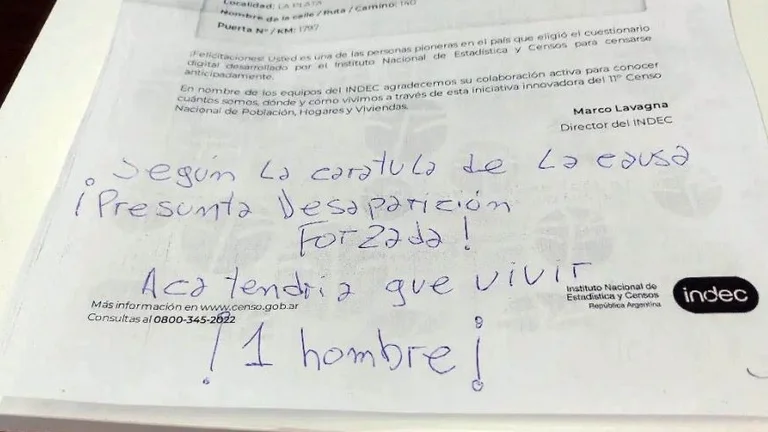 Localidad: LA PLATA
Nombre de la calle / Ruta / Camino: 140
Puerta N° / KM: 1797
¡Felicitaciones! Usted es una de las personas pioneras en el país que eligió el cuestionario
digital desarrollado por el Instituto Nacional de Estadística y Censos para censarse
anticipadamente.
En nombre de los equipos del INDEC agradecemos su colaboración activa para conocer
cuántos somos, dónde y cómo vivimos a través de esta iniciativa innovadora del 11° Censo
Nacional de Población, Hogares y Viviendas.
Marco Lavagna
Director del INDEC
Según La caratula de La causa
¡Presunta Desaparición
Forzada!
Aca tendria que vivir
Más información en www.censo.gob.ar
Consultas al 0800-345-2022
Instituto Nacional de
Estadística y Censos
República Argentina
indec
¡1 hombre¡